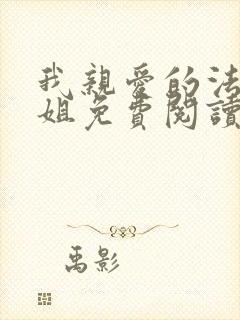 我親愛的法
姐免費閱讀
禹影